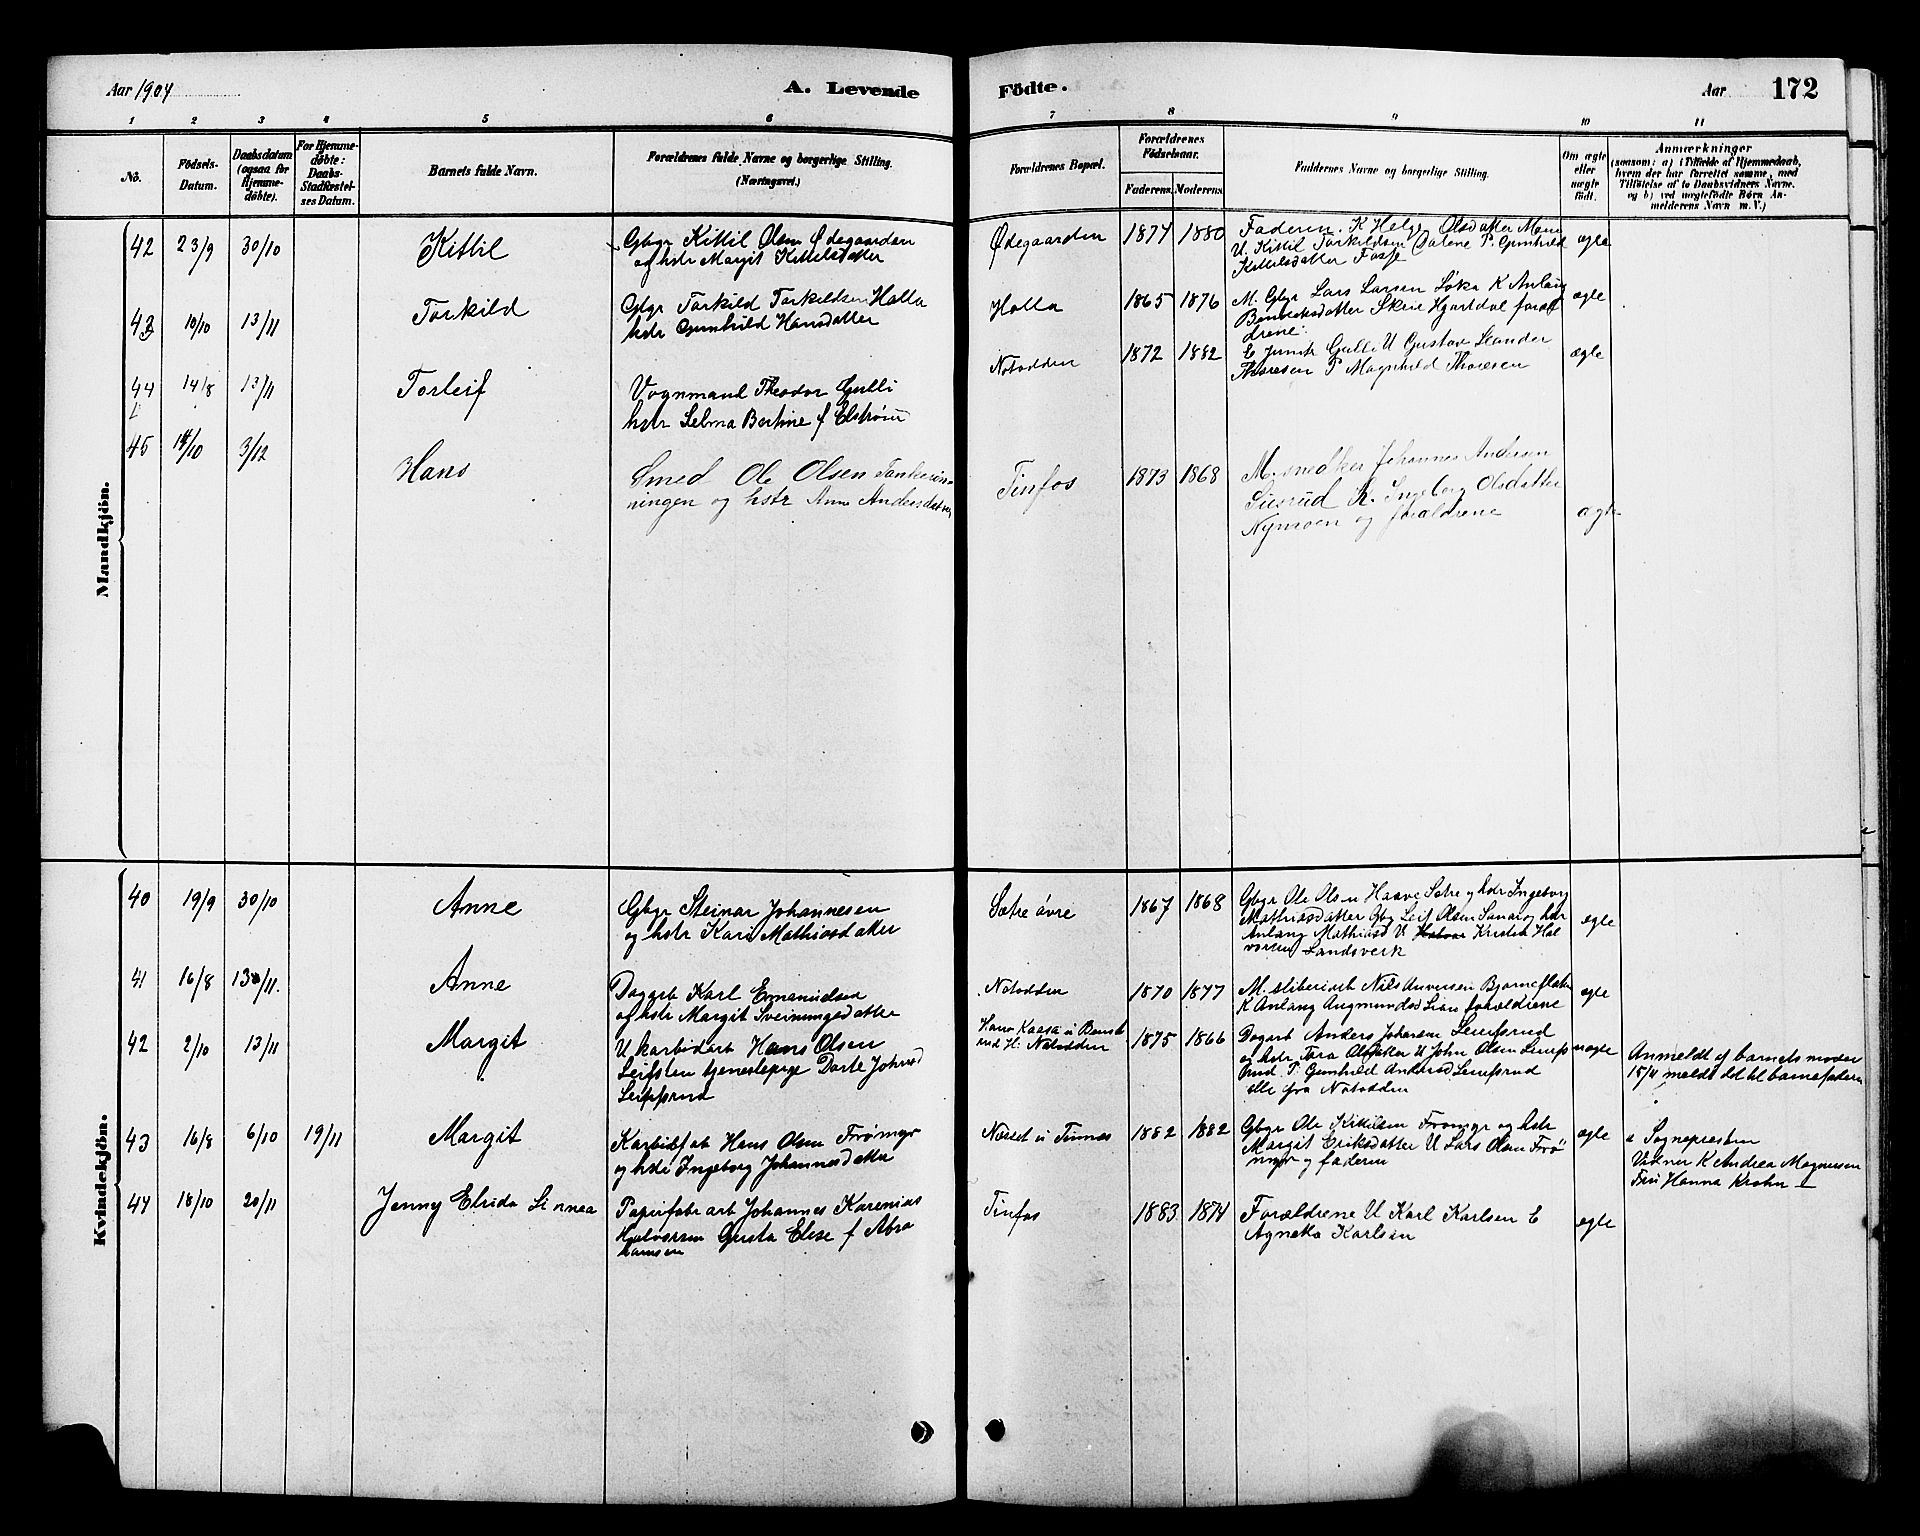 Aar 1904
A. Levende
Födte.
Aar
172
1
2
3
4
5
6
7
8
9
10
11
No.
Födsels-
Datum.
Daabsdatum
(ogsaa for
Hjemme-
døbte).
For Hjemme-
døbte:
Daabs-
Stadfæstel-
ses Datum.
Barnets fulde Navn.
Forældrenes fulde Navne og borgerlige Stilling.
(Næringsvei.)
Forældrenes Bopæl.
Forældrenes
Födselsaar.
Faderens.
Moderens.
Faddernes Navne og borgerlige Stilling.
Om ægte
eller
uægte
født.
Anmærkninger
(saasom: a) i Tilfælde af Hjemmedaab,
hvem der har forrettet samme, med
Tilføielse af to Daabsvidners Navne.
og b) ved uægtefödte Börn An-
melderens Navn m. V.)
Mandkjön.
42
23/9
30/10
Kittil
Gbgr Kittil Olsen Ødegaarden
og hstr Margit Kittelsdatter
Ødegaarden
1877
1880
Faderen. K Helge Olsdatter Moen
U. Kittil Torkildsen Dalene P. Gunhild
Kittilsdatter Fosse
ægte
43
10/10
13/11
Torkild
Gbgr Torkild Torkildsen Holla
hstr Gunhild Hansdatter
Holla
1865
1876
M. Gbgr Lars Larsen Løka K Anlaug
Skrie Hjartdal foræl
drene.
ægte
44
14/8
13/11
Torleif
Vognmand Theodor Gulli
hstr Selma Bertine f Elstrøm
Notodden
1872
1882
Gulli U Gustav Leander
Thoresen P Magnhild Thoresen
ægte
45
14/10
3/12
Hans
Smed Ole Olsen
ningen og hstr Anne Andersdatter
Tinfos
1873
1868
M. snedker Johannes Andersen
K. Ingeborg Olsdatter
Nymoen og forældrene
ægte
Kvindekjön.
40
19/9
30/10
Anne
Gbgr Steinar Johannesen
og hstr Kari Mathiasdatter
Sætre øvre
1867
1868
Gbgr Ole Olsen Haave Sætre og hstr Ingeborg
Mathiasdatter Gbg Leif Olsen og hstr
Anlaug Mathiasd U Kristen Hal
vorsen Landsverk
ægte
41
16/8
13/11.
Anne
Dagarb Karl Emanuelsen
og hstr Margit Sveinungsdatter
Notodden
1870
1877
M. Nils Anversen Bjørneflaten
K Anlaug Augmundsd Lien forældrene
ægte
42
2/10
13/11
Margit
U karbidarb Hans Olsen
tjenestepige Dorte Johnsd
Leifsrud
Hans Kaasa
H: Notodden
1875
1866
Dagarb Anders Johansen
og hstr Tora Olsdatter U John Olsen
rud P. Gunhild Andersd
alle fra Notodden
uægte
Anmeldt af barnets moder
15/11 meldt det til barnefaderen
43
16/8
6/10
19/11
Margit
Karbidfarb Hans Olsen Frømyr
og hstr Ingeborg Johannesdatter
Næset u Tinnes
1882
1882
Gbgr Ole Kittilsen Frømyr og hstr
Margit Eriksdatter U Lars Olsen Frø
myr og faderen
ægte
a Sognepresten
Vidner K Andrea Magnusen
Frk Hanna Krohn
44
18/10
20/11
Jenny Elvida Linnea
Papirfabr arb Johannes Karenius
Halvorsen Gusta Elise f Abra
hamsen
Tinfos
1883
1874
Forældrene U Karl Karlsen E
Agneta Karlsen
ægte